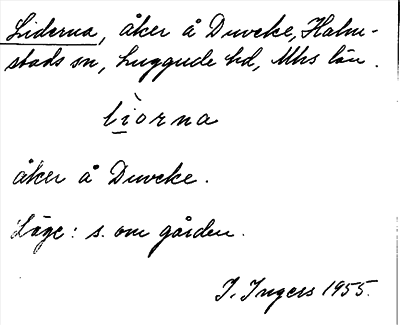 Liderna, åker å Duveke, Halm-
stads sn, Luggude hd, Mhs län.
lìorna
åker å Duveke.
Läge: s. om gården.
I. Ingers 1955.